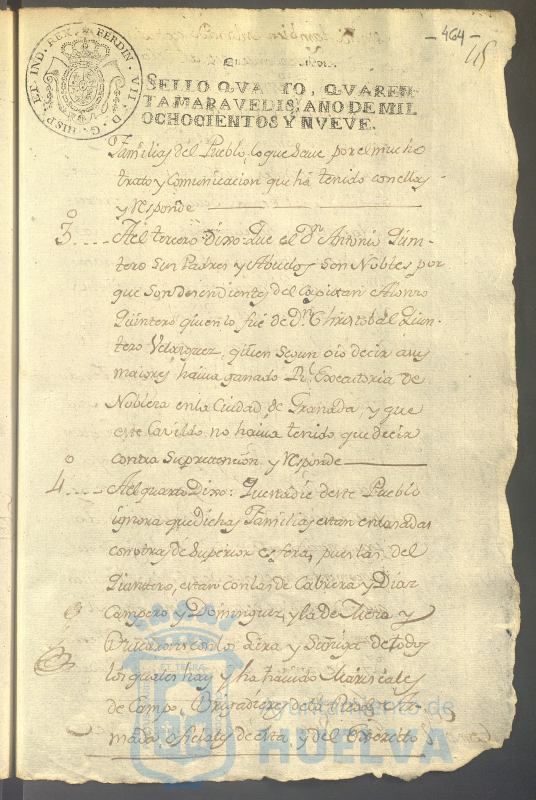 - 464 -
HISP. ET IND. REX. FERDIN. VII. D. G.
SELLO QVARTO, QVAREN-
TA MARAVEDIS, AÑO DE MIL
OCHOCIENTOS Y NVEVE.
Familias del Pueblo, lo que save por el mucho
trato y Comunicacion que há tenido con ellas
y responde
3.º Al tercero Dixo: Que el Dn. Antonio Quin-
tero sus Padres y Abuelos son Nobles por
que son desendientes del Capitan Alonso
Quintero quien lo fué de Dn. Christobal Quin-
tero Velazquez, quien segun oio decir a sus
maiores havia ganado Rl. Executoria de
Nobleza en la Ciudad de Granada, y que
este Cavildo no havia tenido que decir
contra su pretencion y responde
4.º Al quarto Dixo: Que nadie de este Pueblo
ignora que dichas Familias estan enlasadas
con otras de Superior esfera, pues las del
Quintero, estan con las de Cabrera y Diaz
Campero y Dominguez, y la de Mora y
con los Lira y Suñiga de todos
los quales hay y ha havido Mariscales
de Campo, Brigadieres de la Real Ar-
mada, oficiales de esta, y del Exercito
Ayuntamiento de
HUELVA